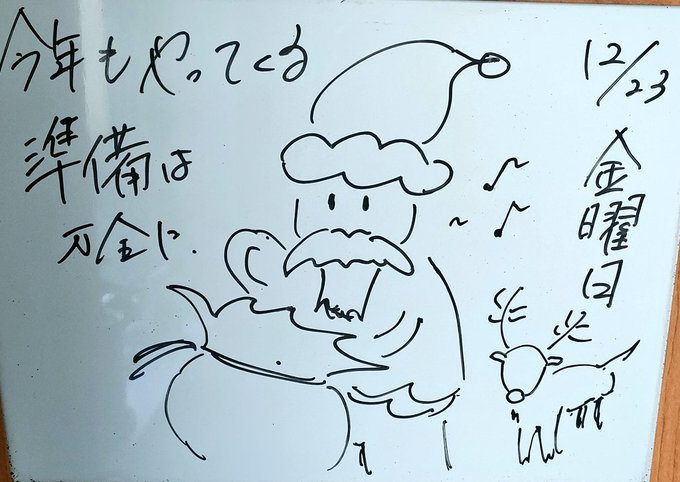 今年もやってくる
準備は
万全に.
12/23
金曜日